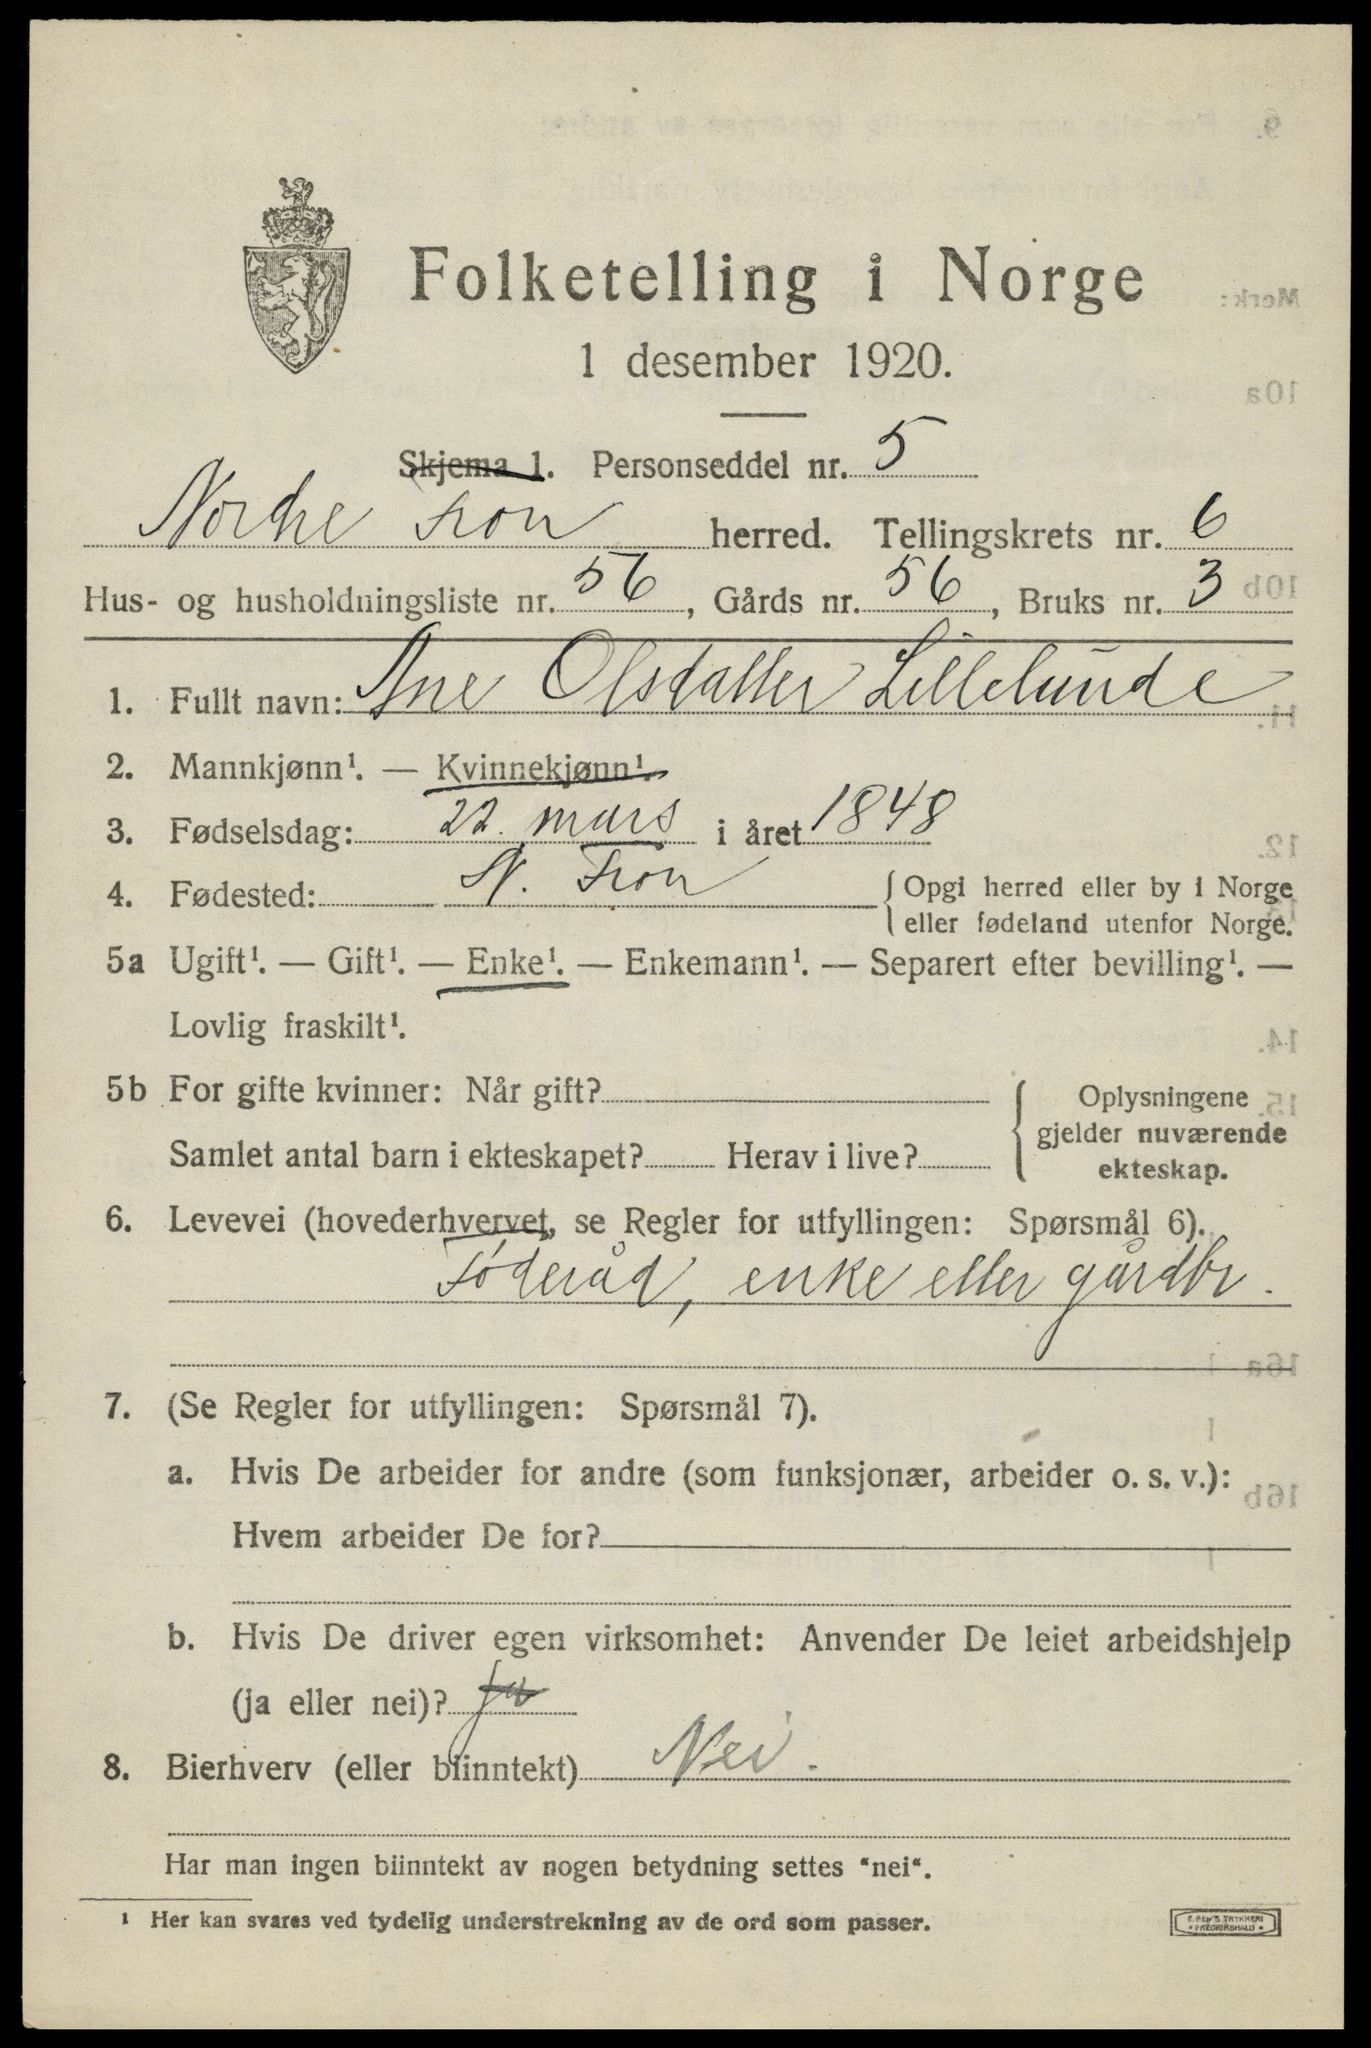 Folketelling i Norge
1 desember 1920.
Skjema 1. Personseddel nr. 5
Nordre Fron herred. Tellingskrets nr. 6
Hus- og husholdningsliste nr. 56, Gårds nr. 56, Bruks nr. 3
1. Fullt navn: Ane Olsdatter Lillelunde
2. Mannkjønn¹. — Kvinnekjønn¹.
3. Fødselsdag: 22. mars i året 1848
4. Fødested: N. Fron { Opgi herred eller by i Norge
eller fødeland utenfor Norge.
5a Ugift¹. — Gift¹. — Enke¹. — Enkemann¹. — Separert efter bevilling¹. —
Lovlig fraskilt¹.
5b For gifte kvinner: Når gift?
Samlet antal barn i ekteskapet? Herav i live?
{ Oplysningene
gjelder nuværende
ekteskap.
6. Levevei (hovederhvervet, se Regler for utfyllingen: Spørsmål 6).
Føderåd, enke eller gårdbr.
7. (Se Regler for utfyllingen: Spørsmål 7).
a. Hvis De arbeider for andre (som funksjonær, arbeider o. s. v.):
Hvem arbeider De for?
b. Hvis De driver egen virksomhet: Anvender De leiet arbeidshjelp
(ja eller nei)? ja
8. Bierhverv (eller biinntekt) Nei.
Har man ingen biinntekt av nogen betydning settes "nei".
¹ Her kan svares ved tydelig understrekning av de ord som passer.
TRYKKERI
FREDRIKSHALD